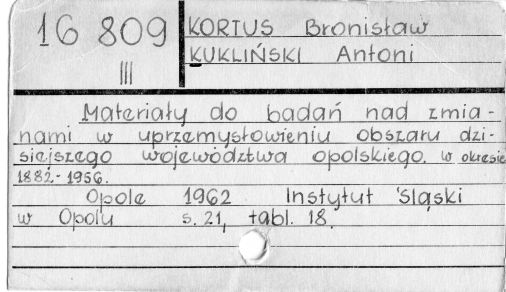 16 809
III
KORTUS Bronisław
KUKLIŃSKI Antoni
Materiały do badań nad zmia-
nami w uprzemysłowieniu obszaru dzi-
siejszego województwa opolskiego. w okresie
1882-1956.
Opole 1962 Instytut Śląski
w Opolu s. 21, tabl. 18.